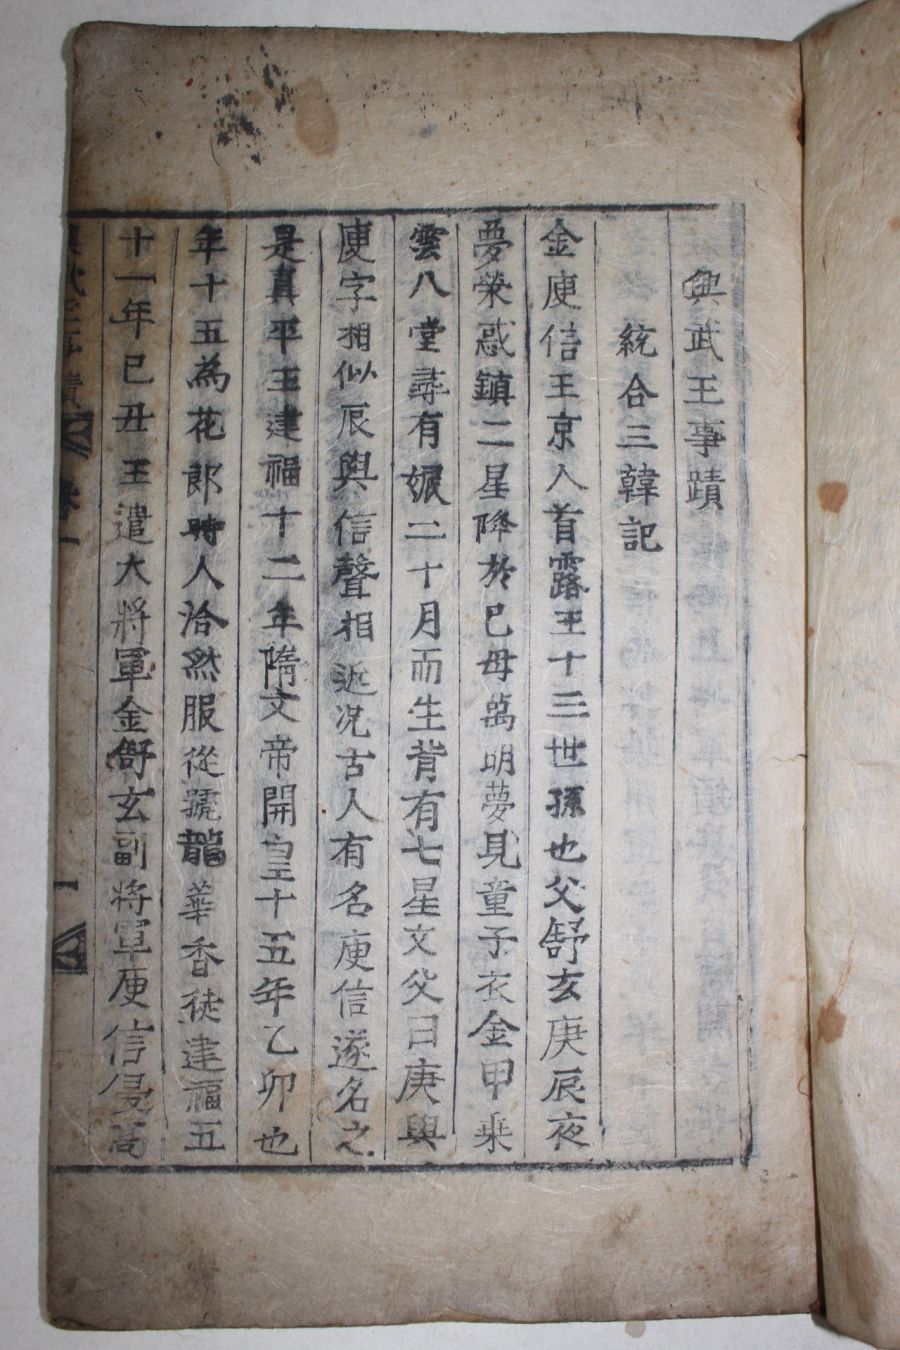 興武王事蹟
統合三韓記
金庾信王京人首露王十三世孫也父舒玄庚辰夜
夢熒惑鎮二星降於已母萬明夢見童子衣金甲乘
雲八堂尋有娠二十月而生背有七星文父曰庚與
庾字相似辰與信聲相近况古人有名庾信遂名之
是真平王建福十二年隋文帝開皇十五年乙卯也
年十五為花郎時人洽然服從號龍華香徒建福五
十一年已丑王遣大將軍金舒玄副將軍庾信侵高
興武王事蹟 卷一 一